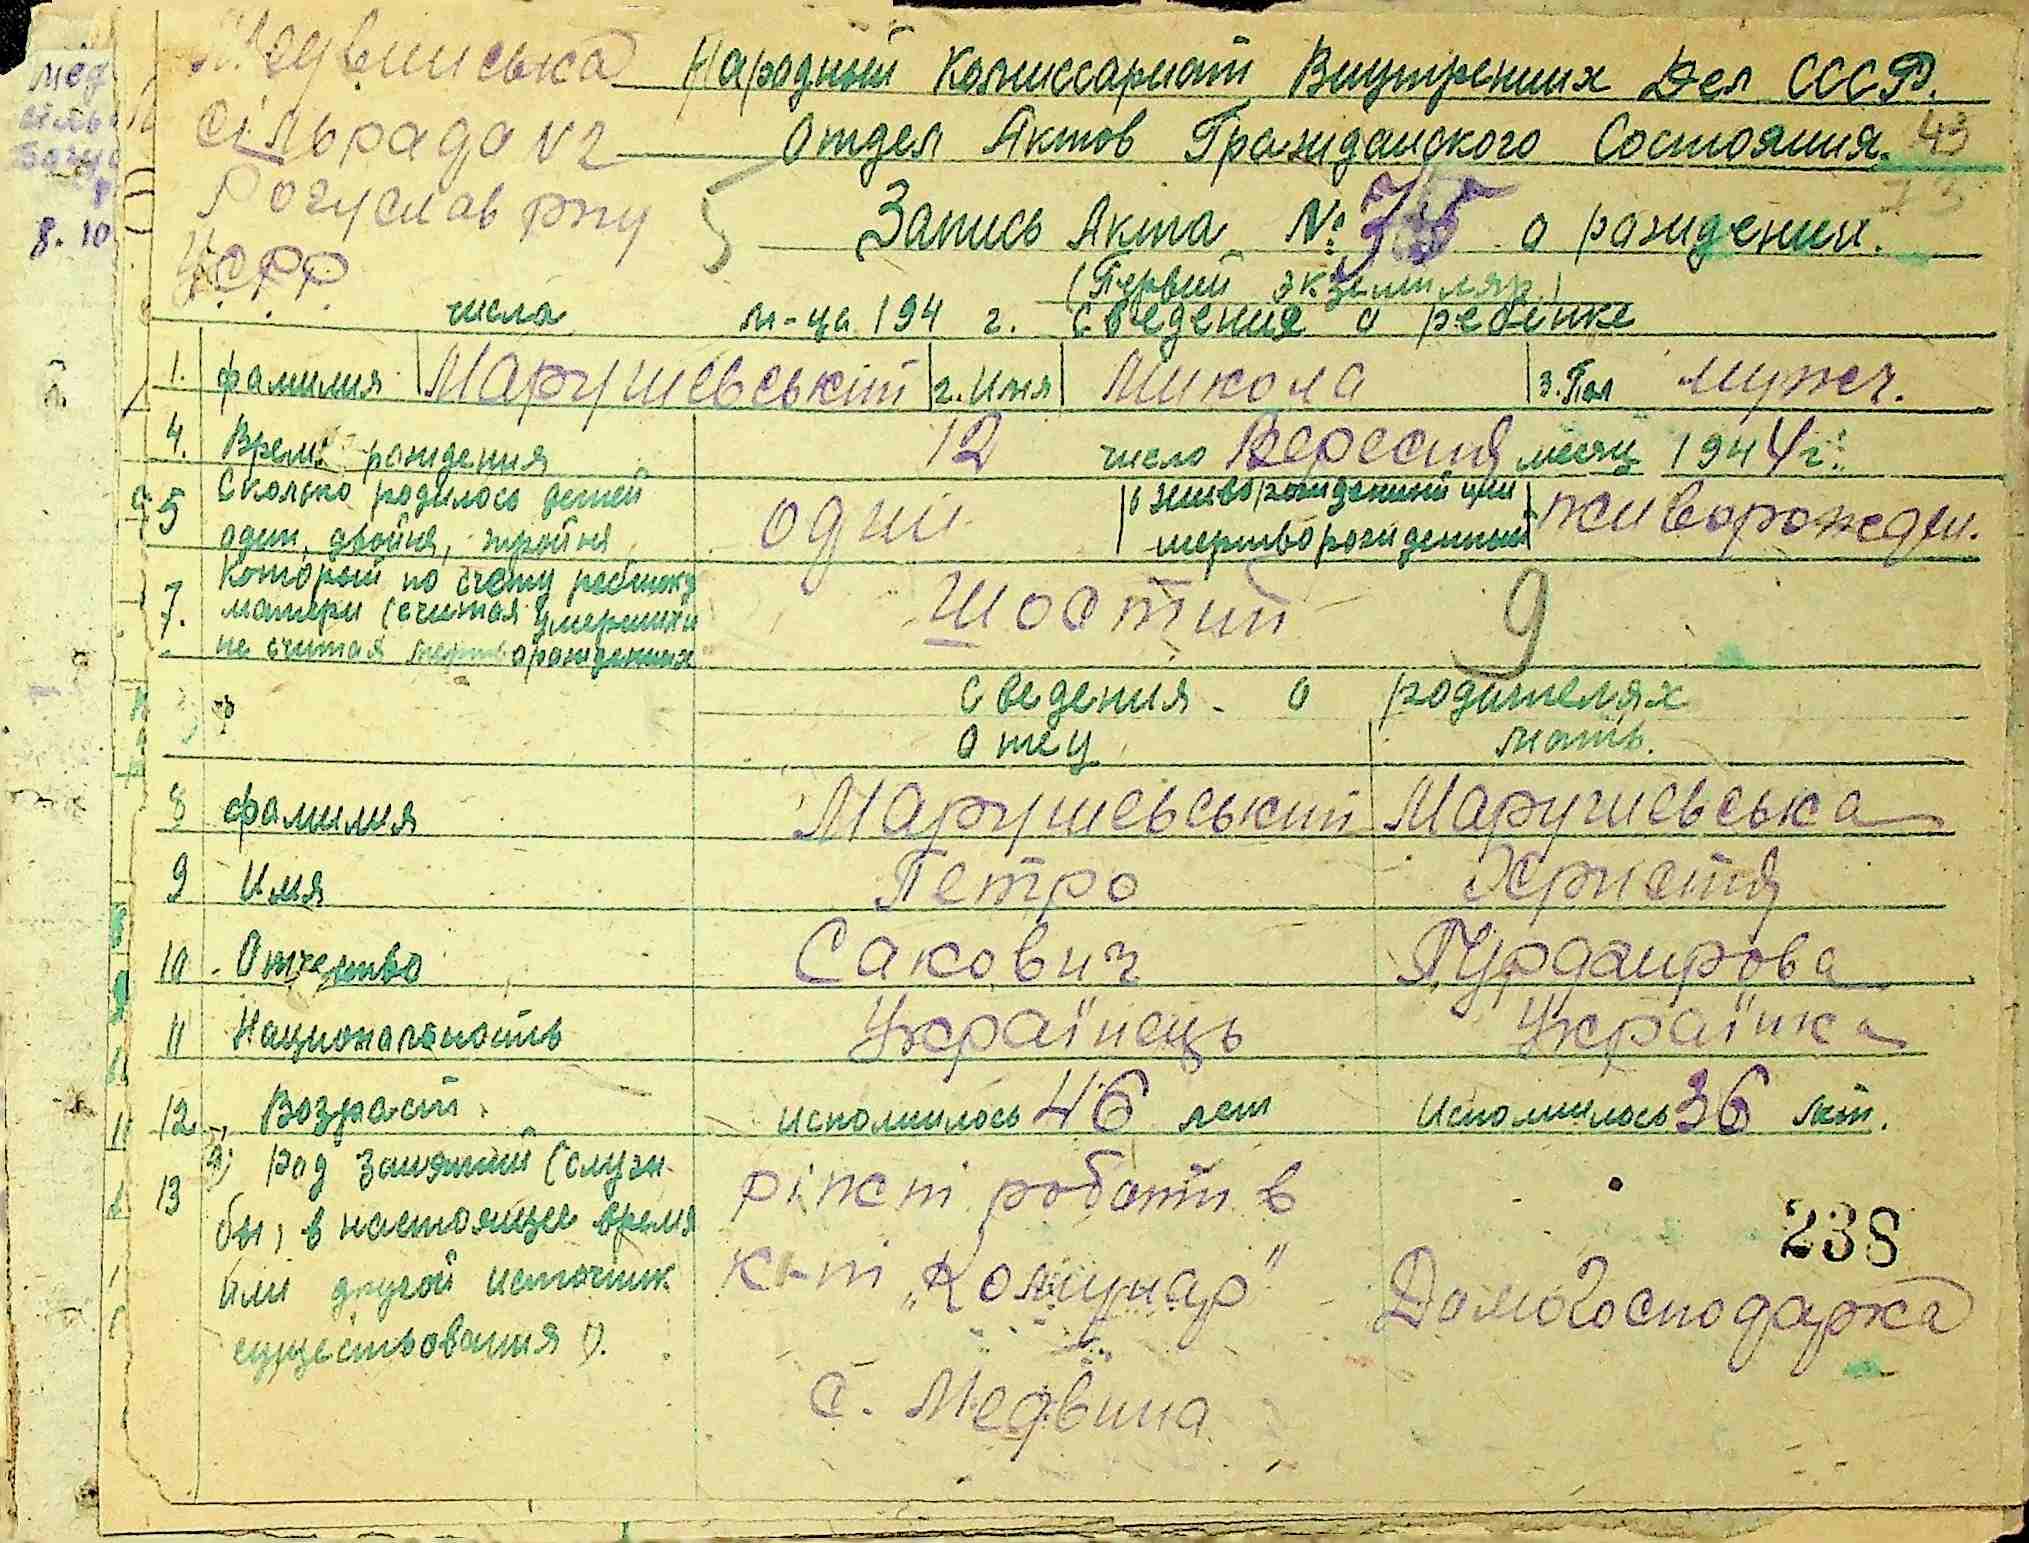 Медвинська
сільрада №2
Богуслав рну
УСРР
Народный Комиссариат Внутренних Дел СССР.
Отдел Актов Гражданского Состояния.
43
73
Запись Акта №75 о рождении.
(Первий экземпляр)
числа м-ца 194 г. Сведения о ребенке
1. фамилия Марушевський 2. Имя Микола 3. Пол мужч.
4. Время рождения 12 число Вересня месяц 1944 г.
5 Сколько родилось детей один, двойня, тройня один 6 живорожденный или мертворожденный живорожден.
7. Который по счету ребенку матери (считая умерших и не считая мертворожденных шостий 9
Сведения о родителях
Отец Мать.
8 фамилия Марушевський Марушевська
9 Имя Петро Христя
10 Отчество Сакович
11 Национальность Українець Українка
12. Возраст. Исполнилось 46 лет Исполнилось 36 лет.
13 а) Род занятий (служ-
бы, в настоящее время
или другой источник
существования).
ріжні роботи в
к-ті „Комунар"
с. Медвина
238
Домогосподарка
Мед
8. 10